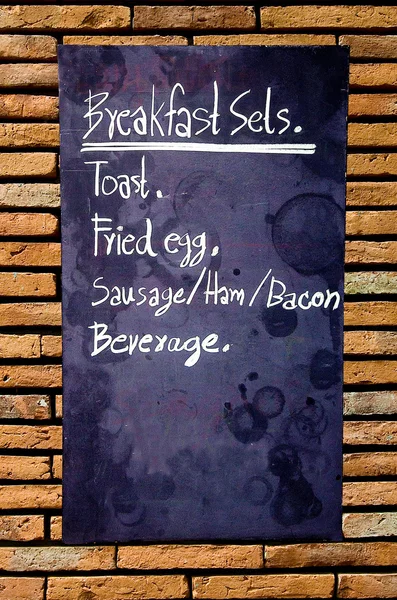 Breakfast Sets.
Toast.
Fried egg.
Sausage/Ham/Bacon
Beverage.